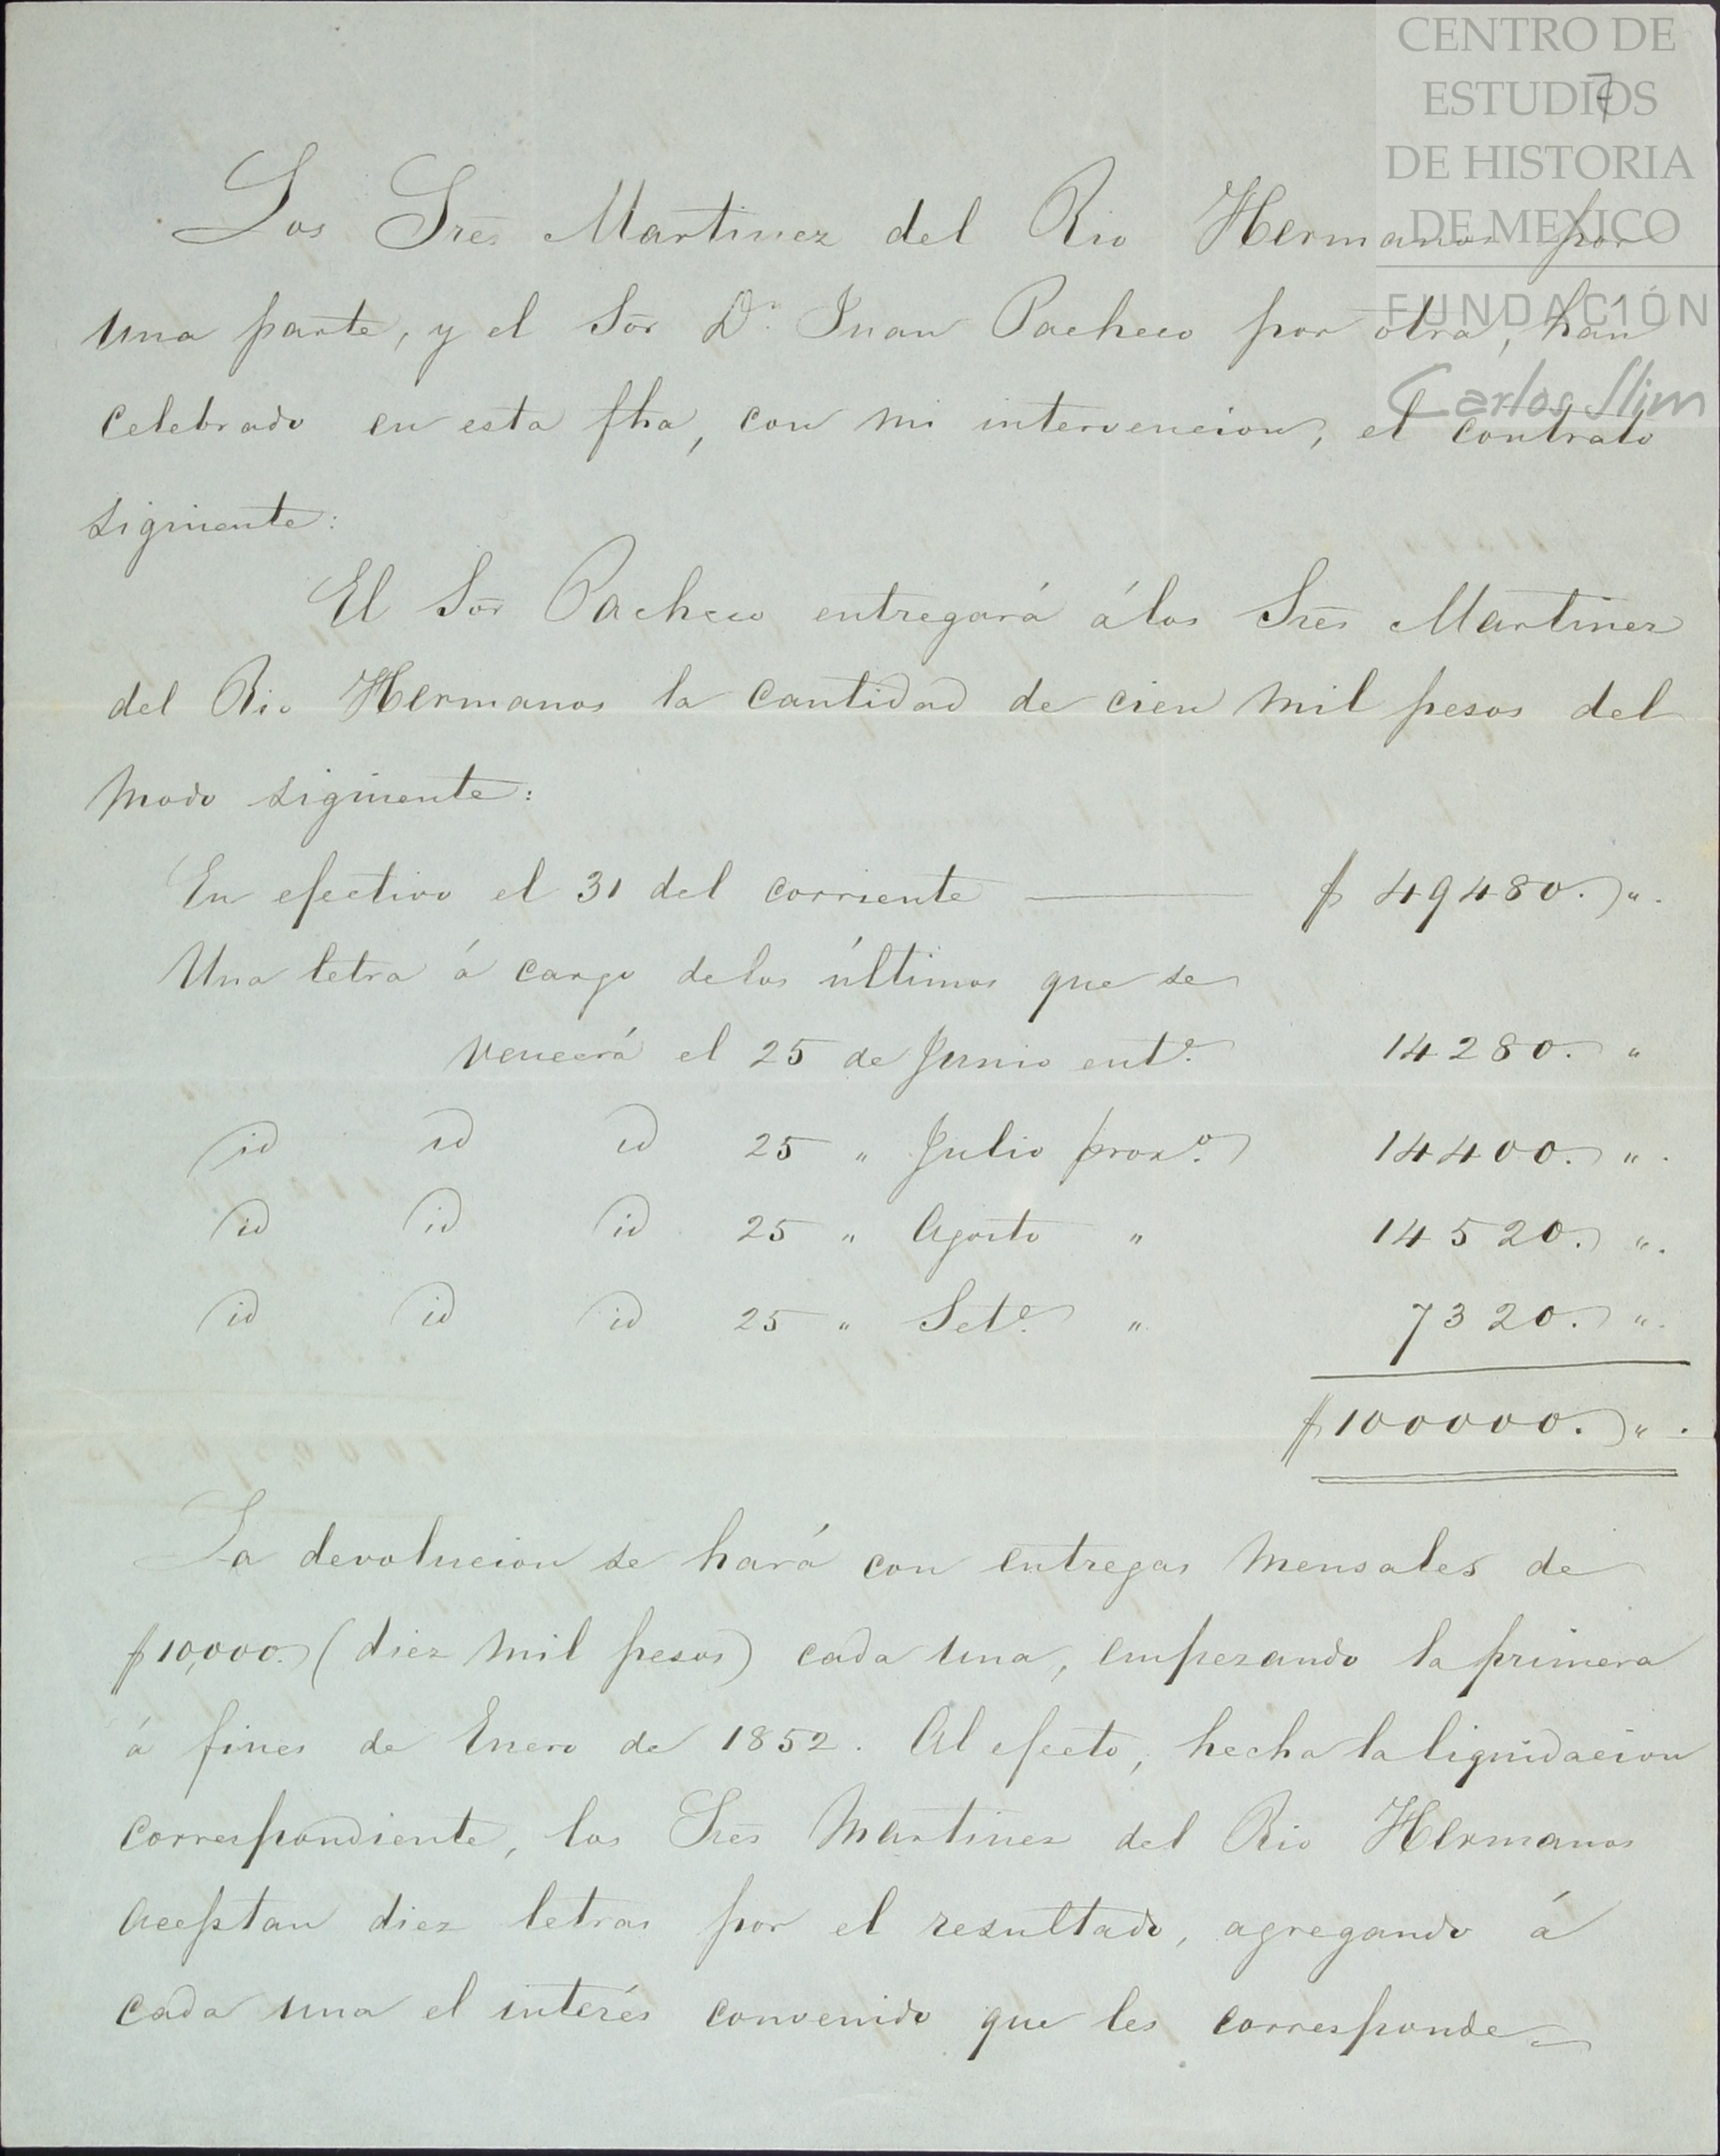 CENTRO DE
ESTUDIOS
DE HISTORIA
DE MEXICO
FUNDACIÓN
Carlos Slim
7
Los Sres Martinez del Rio Hermanos por
una parte, y el Sor Dn. Juan Pacheco por otra, han
celebrado en esta fha, con mi intervencion, el contrato
siguiente:
El Sor Pacheco entregará á los Sres Martinez
del Rio Hermanos la cantidad de cien mil pesos del
modo siguiente:
En efectivo el 31 del corriente — $ 49480. ".
Una letra á cargo de los últimos que se
vencerá el 25 de Junio ente. 14280. "
id id id 25 " Julio proxo. 14400. ".
id id id 25 " Agosto " 14520. ".
id id id 25 " Sete. " 7320. ".
$ 100000. ".
La devolucion se hará con entregas mensales de
$10,000. (diez mil pesos) cada una, empezando la primera
á fines de Enero de 1852. Al efecto, hecha la liquidacion
correspondiente, los Sres Martinez del Rio Hermanos
aceptan diez letras por el resultado, agregando á
cada una el interés convenido que les corresponde